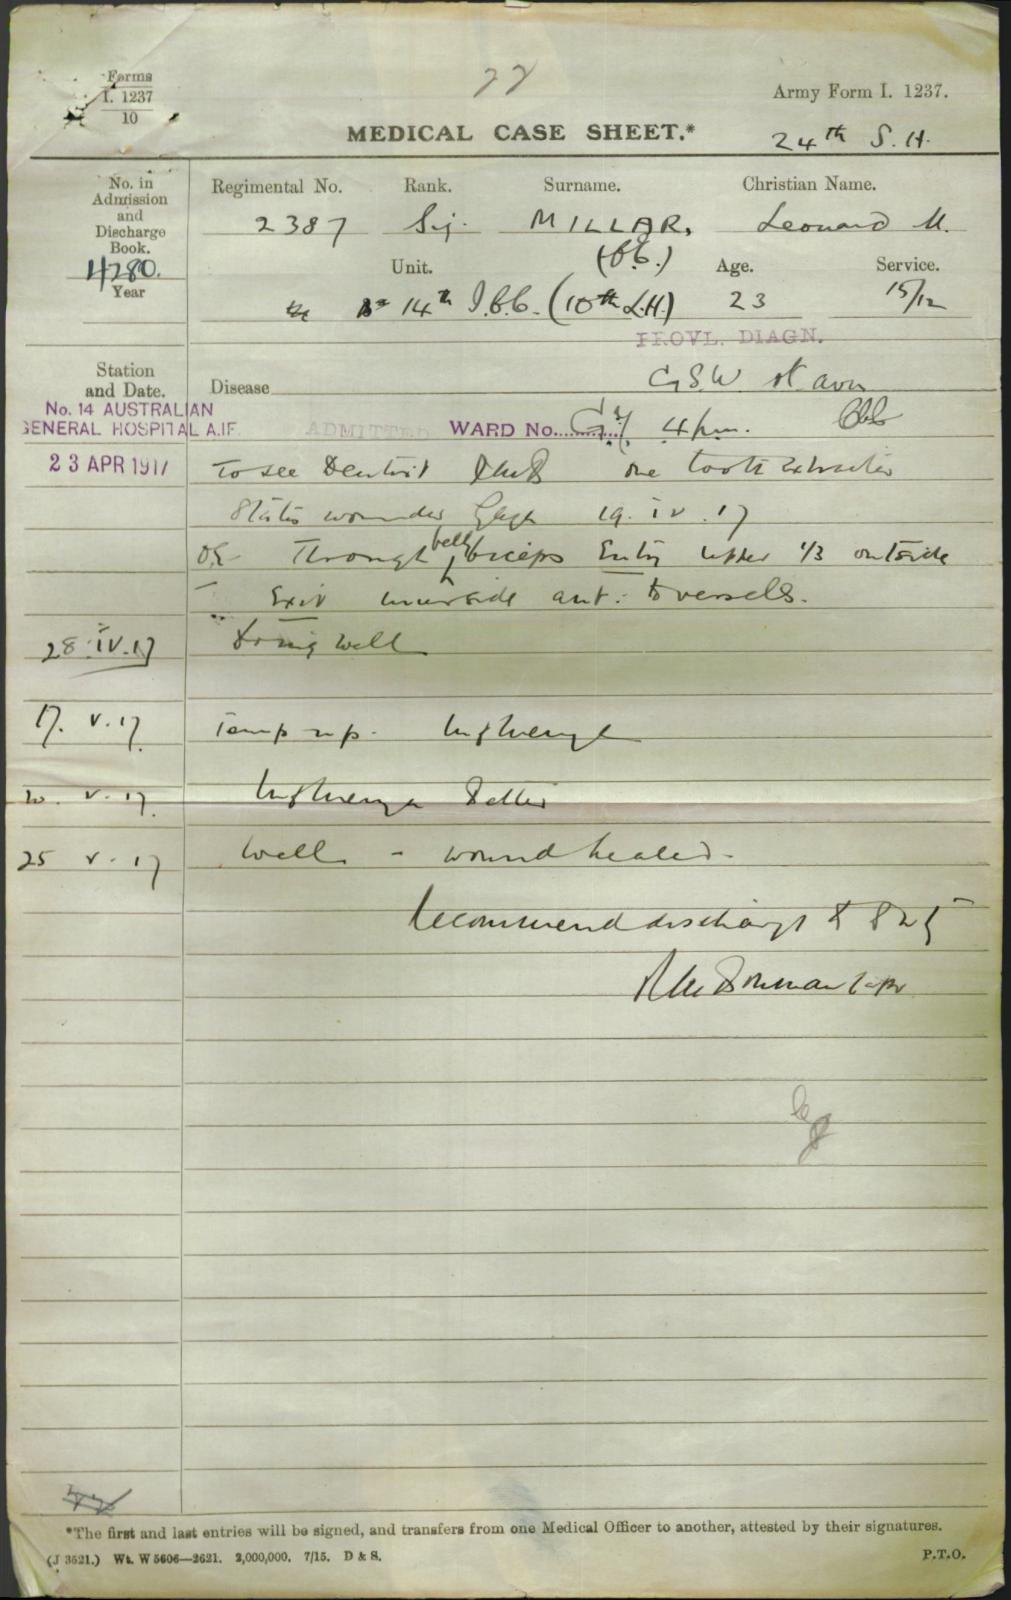 Forms
I. 1237
10
77
Army Form I. 1237.
MEDICAL CASE SHEET.*
24th S. H.
No. in Admission and Discharge Book.
4280.
Year
Regimental No. Rank. Surname. Christian Name.
2387 Sig. MILLAR, Leonard M.
Unit. Age. Service.
14th I.C.C. (10th L.H) 23 15/12
PROVL. DIAGN.
Station and Date.
Disease GSW rt arm
No. 14 AUSTRALIAN
GENERAL HOSPITAL A.I.F.
ADMITTED WARD No. 4 pm.
23 APR 1917
To see Dentist one tooth extraction
States wounded Gaza 19.iv.17
OE Through belly biceps Entry upper 1/3 outside
Exit innerside ant. to vessels.
28.IV.17 Doing well
17.V.17 Temp up. Influenza
20.V.17 Influenza better
25 V.17 Well - wound healed.
Recommend discharge
*The first and last entries will be signed, and transfers from one Medical Officer to another, attested by their signatures.
(J 3521.) Wt. W 5606—2621. 2,000,000. 7/15. D & S. P.T.O.